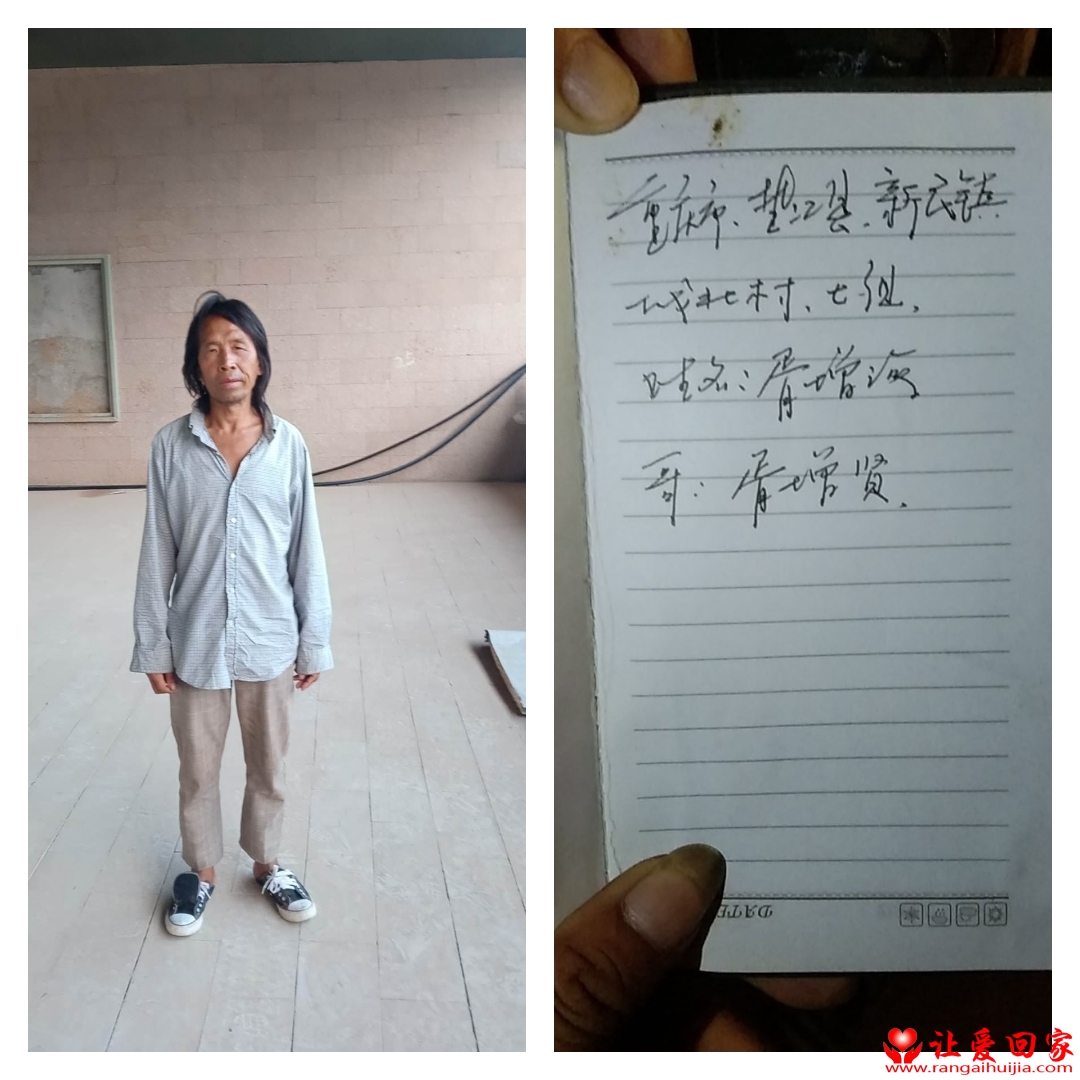 重庆市、垫江县、新民镇
城北村、七组.
姓名：胥增海
哥：胥增贤.
DATE
让爱回家
www.rangaihuijia.com